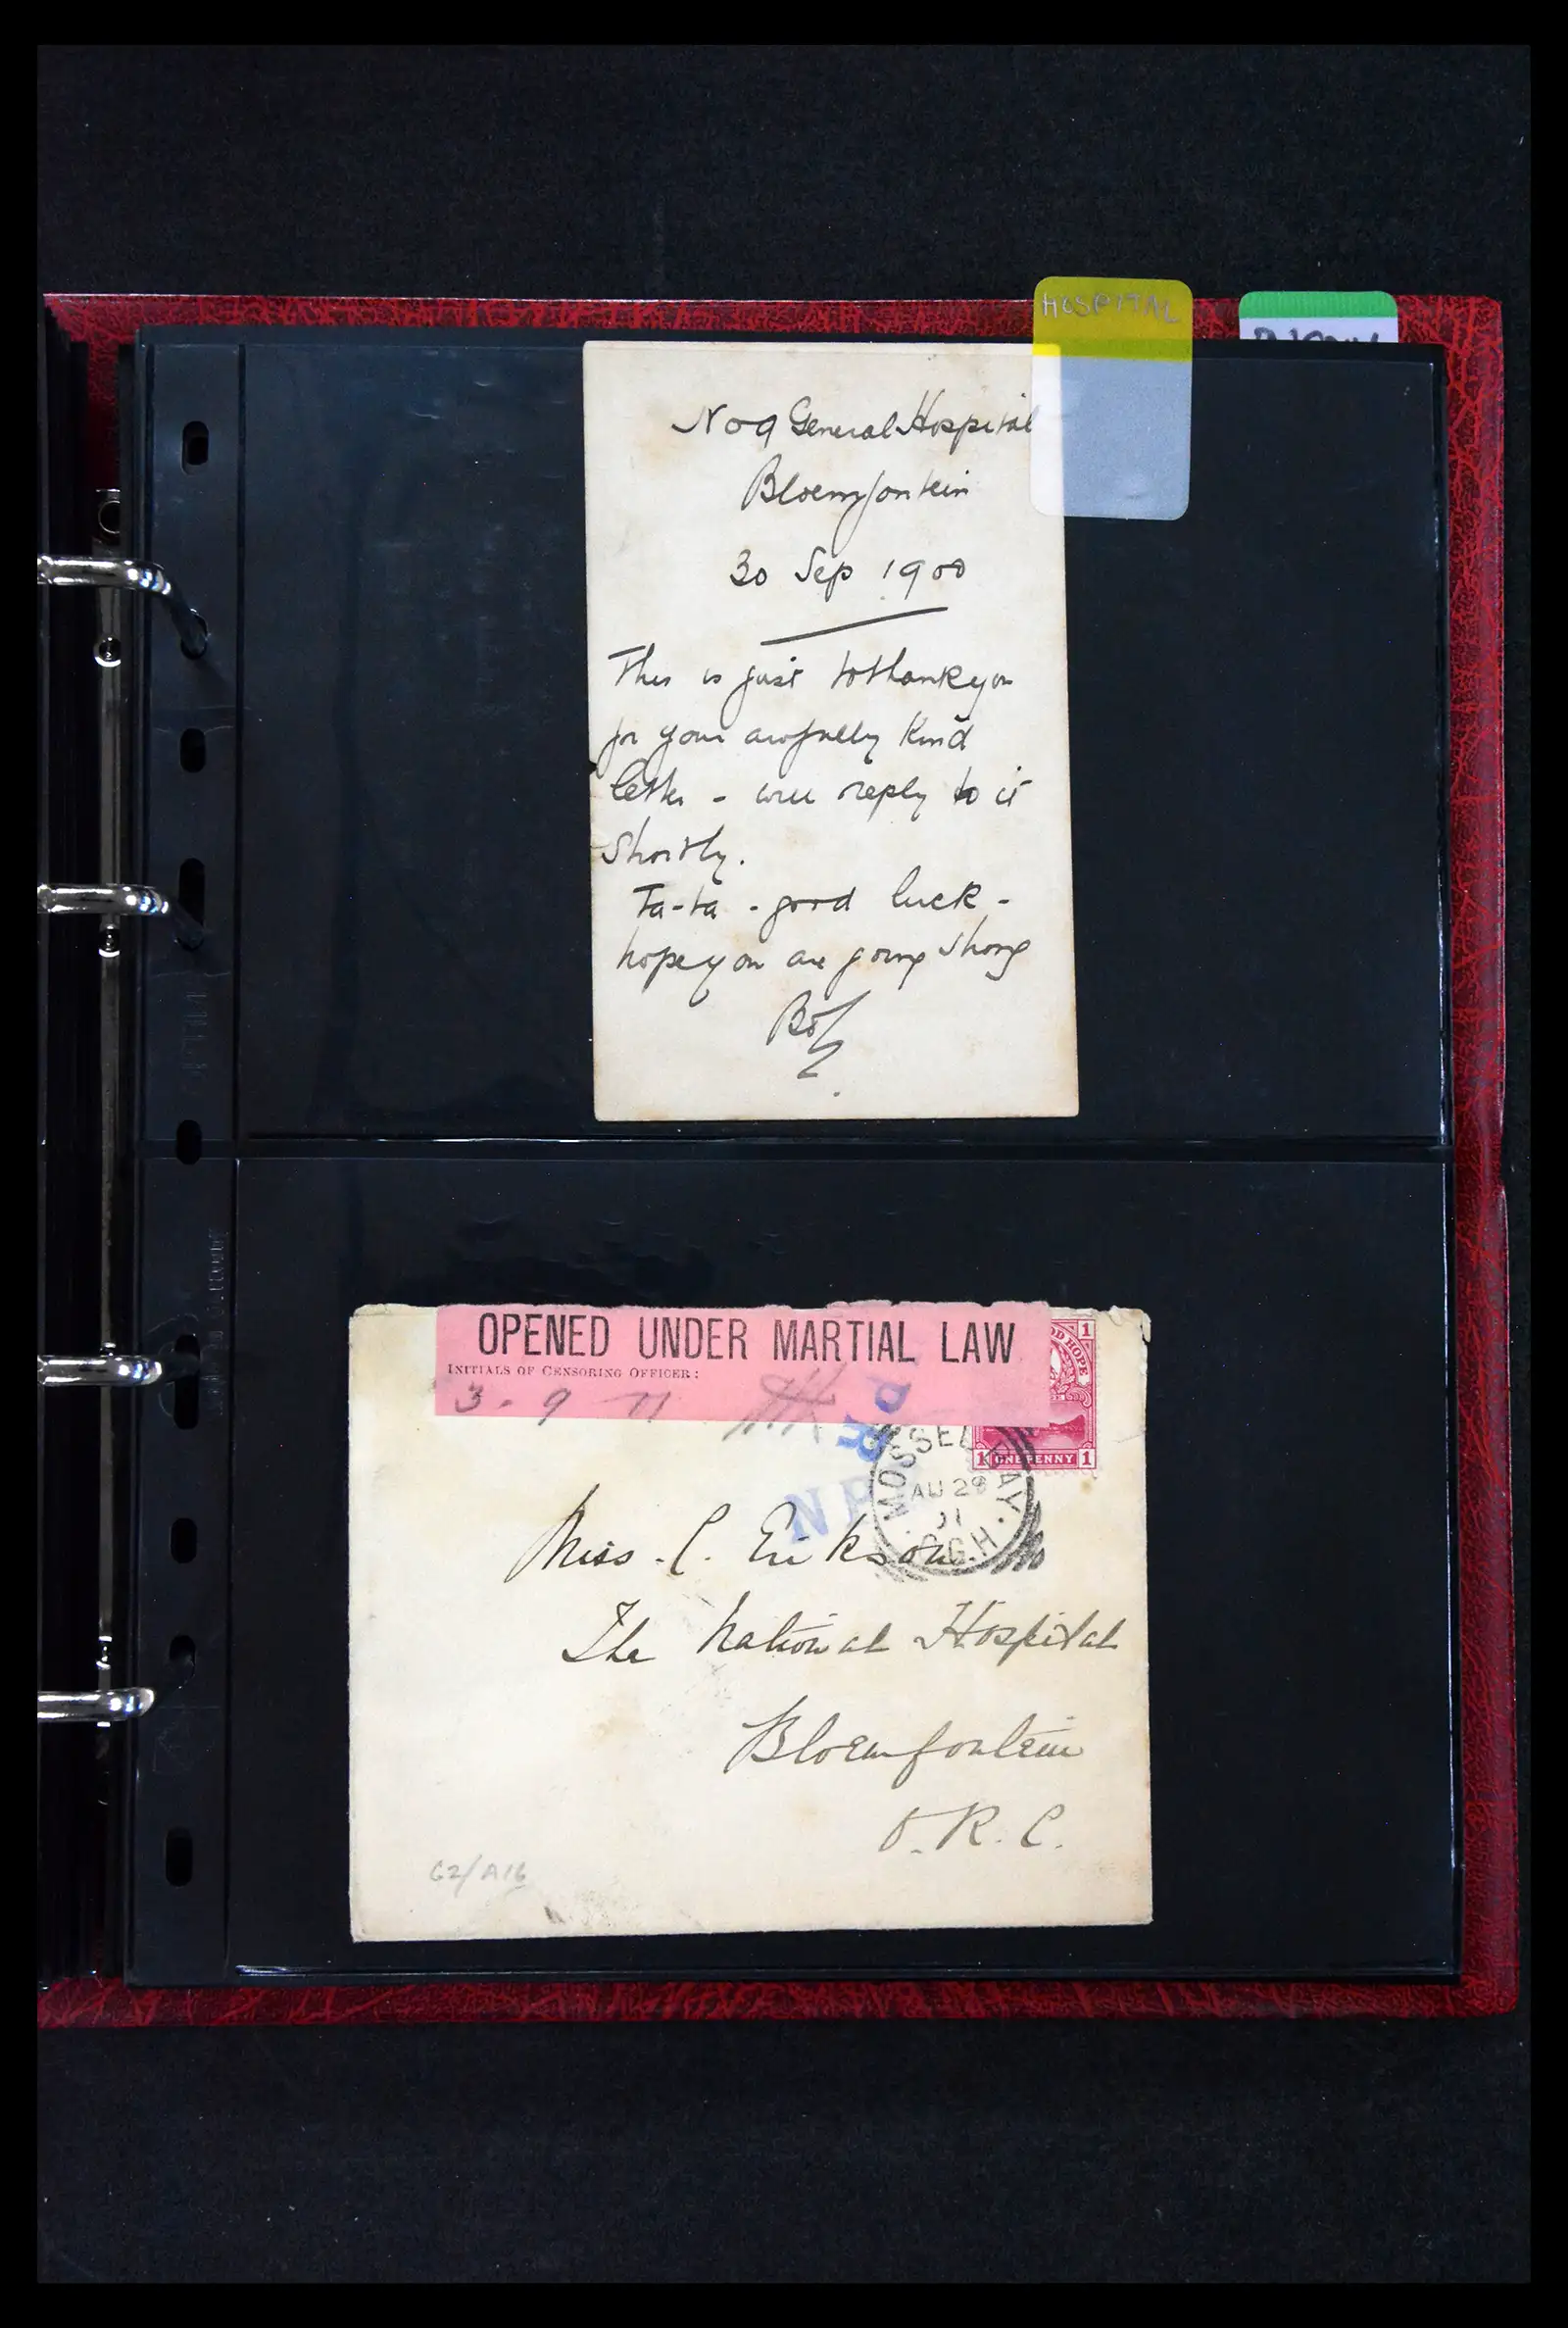 HOSPITAL
No 9 General Hospital
Bloemfontein
30 Sep 1900
This is just to thank you
for your awfully kind
letter - will reply to it
shortly.
Ta-ta - good luck -
hope you are going strong
OPENED UNDER MARTIAL LAW
INITIALS OF CENSORING OFFICER:
3 - 9
D HOPE
1
1 ONE PENNY 1
MOSSEL BAY
AU 28
01
C.G.H
Miss. C. Erikson.
The National Hospital
Bloemfontein
O. R. C.
G2/A16